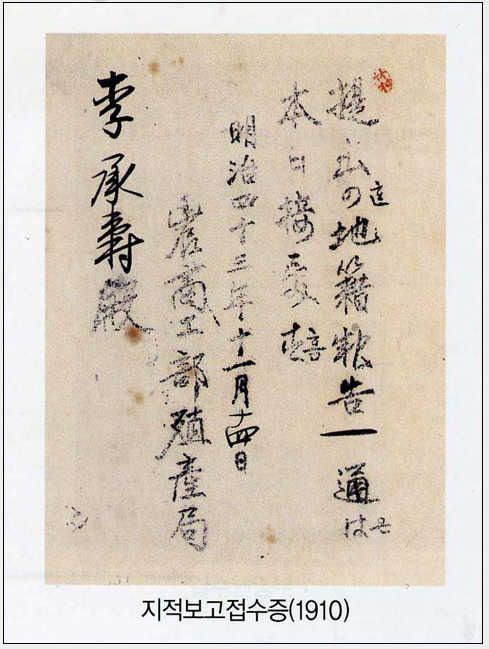 提出の地籍報告一通は
本日接受候
明治四十三年十一月十四日
農商工部殖産局
李承壽殿
지적보고접수증(1910)